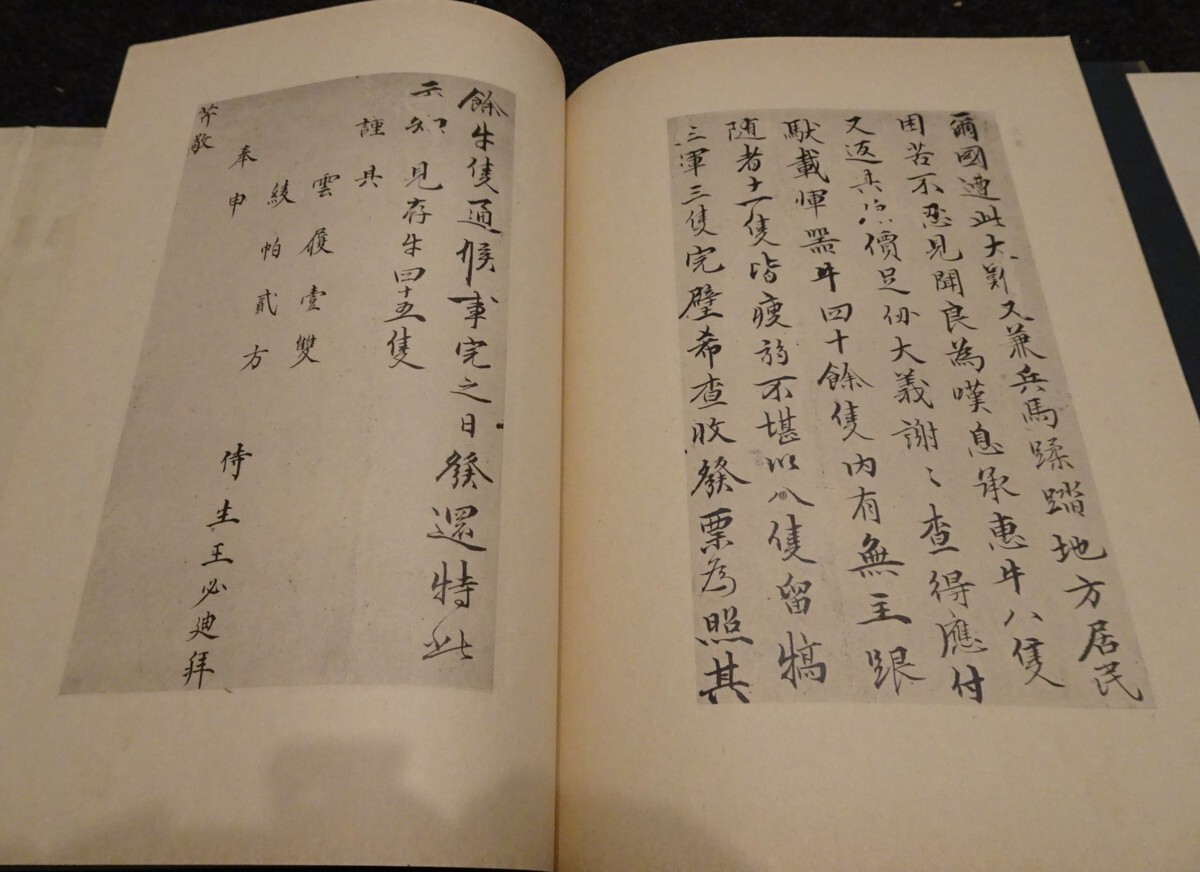 爾國遭此大難又兼兵馬蹂踏地方居民
困苦不忍見聞良為嘆息承惠牛八隻
又返具價足仞大義謝〻查得應付
馱載軍器牛四十餘隻內有無主跟
隨者十一隻皆瘦弱不堪以八隻留犒
三軍三隻完璧希查收發票為照其
餘牛隻通候事完之日發還特此
示知 見存牛四十五隻
謹具
雲履壹雙
綾帕貳方
奉申
芹敬
侍生王必迪拜